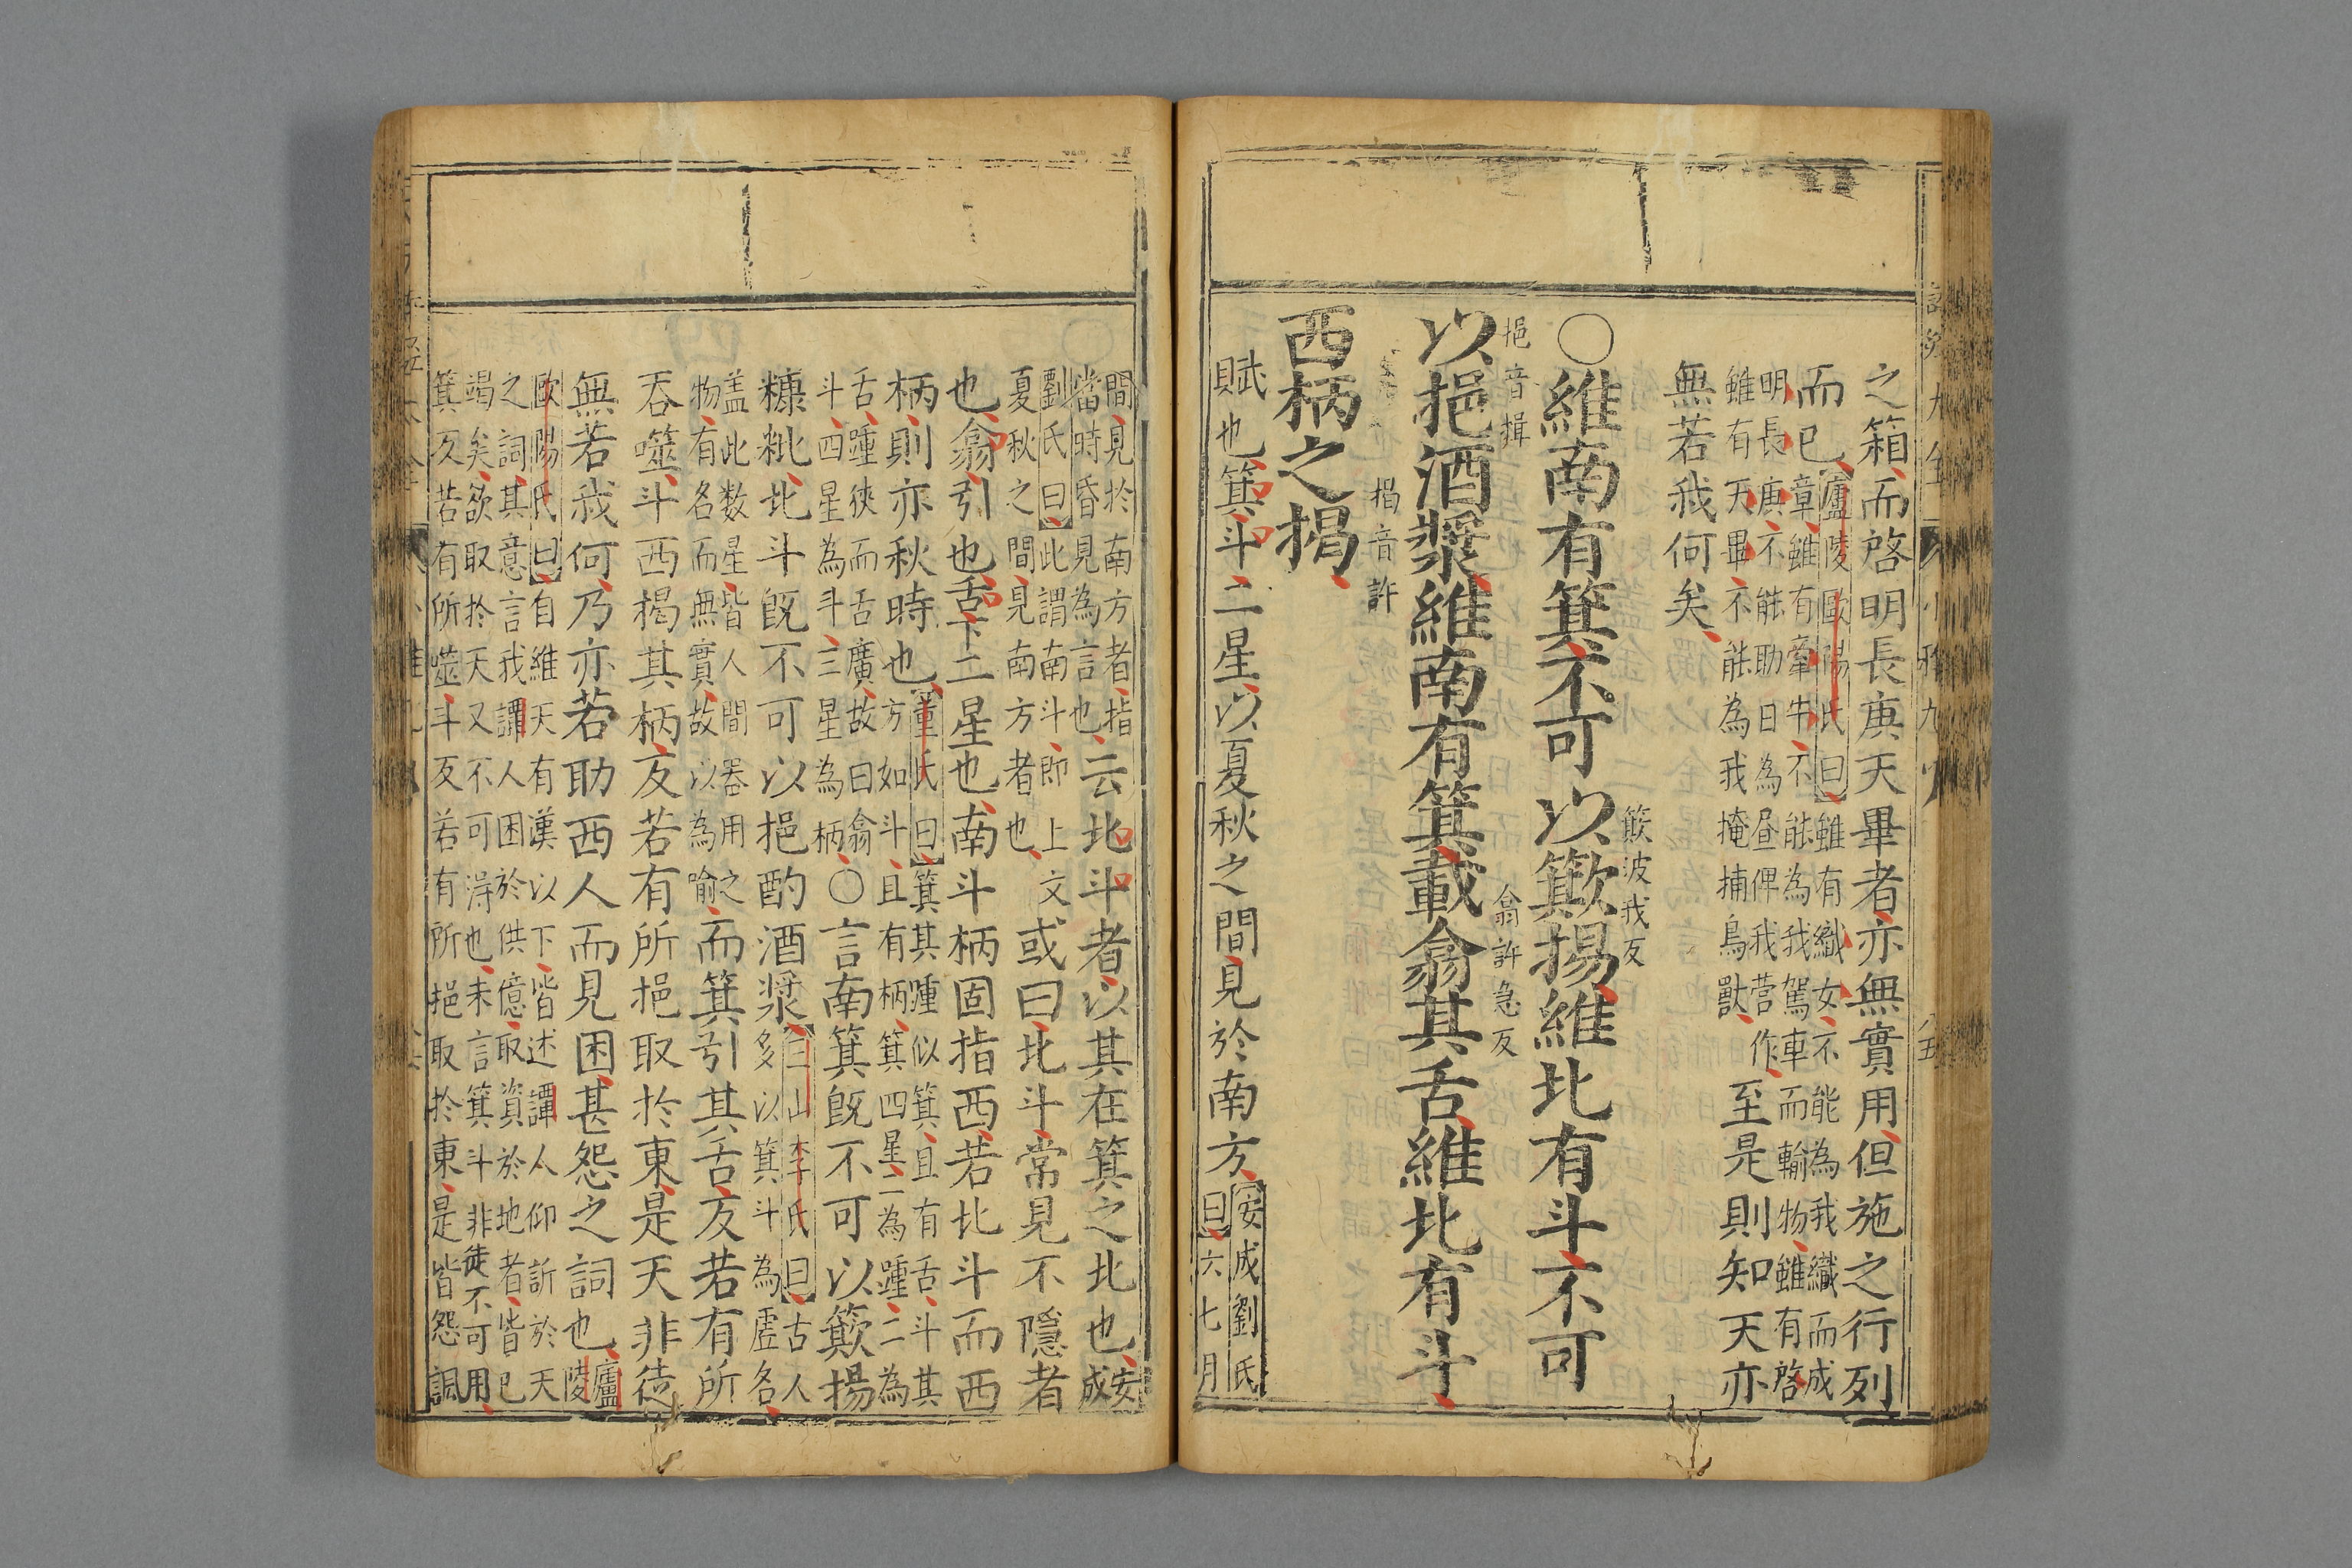 之箱而啓明長庚天畢者亦無實用但施之行列
而已廬陵歐陽氏曰雖有織女不能為我織而成
章雖有牽牛不能為我駕車而輸物雖有啓
明長庚不能助日為昼俾我营作
雖有天畢不能為我掩捕鳥獸
至是則知天亦
無若我何矣
簸波我反
○維南有箕不可以簸揚維北有斗不可
挹音揖
翕許急反
以挹酒漿維南有箕載翕其舌維北有斗
揭音許
西柄之揭
賦也箕斗二星以夏秋之間見於南方
安成劉氏
曰六七月
間見於南方者指
當時昏見為言也
云北斗者以其在箕之北也
安
成
劉氏曰此謂南斗即上文
夏秋之間見南方者也
或曰北斗常見不隱者
也翕引也舌下二星也南斗柄固指西若北斗而西
柄則亦秋時也
董氏曰箕其踵似箕且有舌斗其
方如斗且有柄箕四星二為踵二為
舌踵狹而舌廣故曰翕
斗四星為斗三星為柄
○言南箕旣不可以簸揚
糠粃北斗旣不可以挹酌酒漿
三山李氏曰古人
多以箕斗為虛名
盖此数星皆人間器用之
物有名而無實故以為喻
而箕引其舌反若有所
吞噬斗西揭其柄反若有所挹取於東是天非徒
無若我何乃亦若助西人而見困甚怨之詞也
廬
陵
歐陽氏曰自維天有漢以下皆述譚人仰訴於天
之詞其意言我譚人困於供億取資於地者皆已
竭矣欲取於天又不可得也未言箕斗非徒不可用
箕反若有所噬斗反若有所挹取於東是皆怨訕